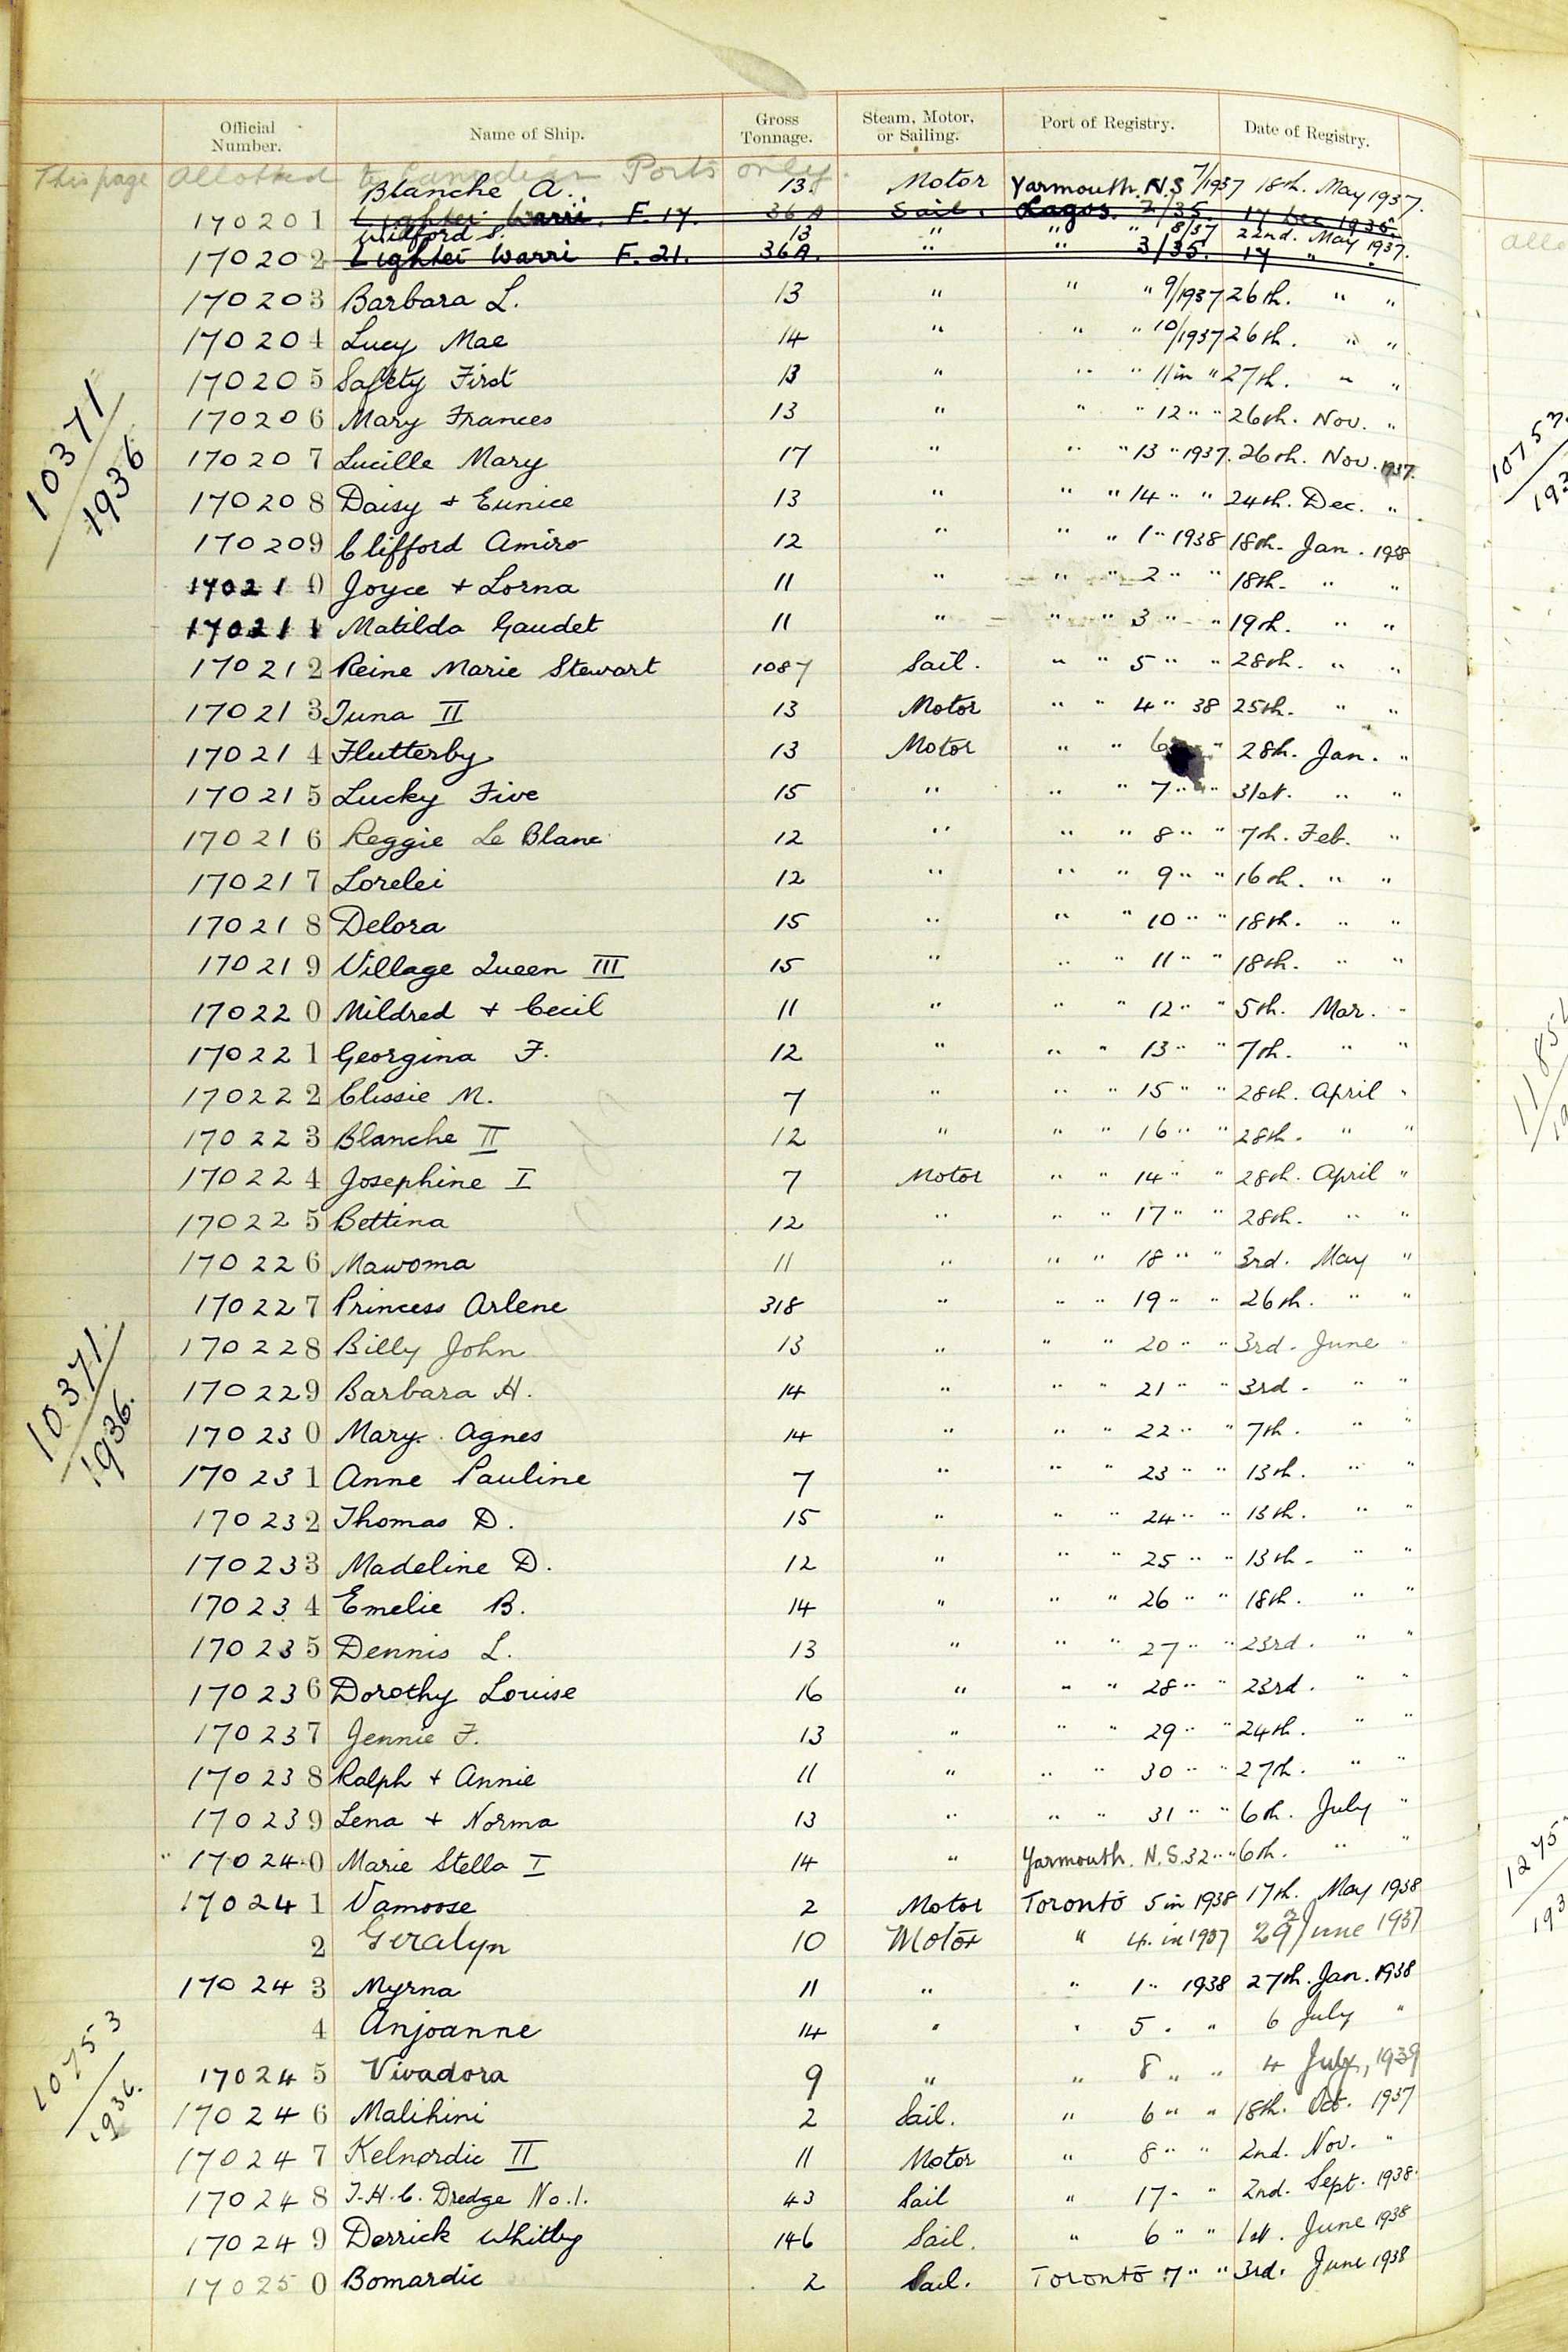 Official Number. Name of Ship. Gross Tonnage. Steam, Motor, or Sailing. Port of Registry. Date of Registry.
This page allotted to Canadian Ports only.
Blanche A. 13. Motor Yarmouth. N.S 7/1937 18th. May 1937.
170201 Lighter Warri. F. 17. 36 A Sail. Lagos. 2/35. 17 Dec 1935.
Wilford S. 13 " " " 8/37 22nd. May 1937.
170202 Lighter Warri F. 21. 36A. " " 3/35. 17 " "
170203 Barbara L. 13 " " " 9/1937 26th. " "
170204 Lucy Mae 14 " " " 10/1937 26th. " "
170205 Safety First 13 " " " 11 in " 27th. " "
170206 Mary Frances 13 " " " 12 " " 26th. Nov. "
170207 Lucille Mary 17 " " " 13 " 1937. 26th. Nov. 1937.
170208 Daisy + Eunice 13 " " " 14 " " 24th. Dec. "
170209 Clifford Amiro 12 " " " 1 " 1938 18th. Jan. 1938
170210 Joyce + Lorna 11 " " " 2 " " 18th. " "
170211 Matilda Gaudet 11 " " " 3 " " 19th. " "
170212 Reine Marie Stewart 1087 Sail. " " 5 " " 28th. " "
170213 Tuna II 13 Motor " " 4 " 38 25th. " "
170214 Flutterby 13 Motor " " 6 " 28th. Jan. "
170215 Lucky Five 15 " " " 7 " " 31st. " "
170216 Reggie Le Blanc 12 " " " 8 " " 7th. Feb. "
170217 Lorelei 12 " " " 9 " " 16th. " "
170218 Delora 15 " " " 10 " " 18th. " "
170219 Village Queen III 15 " " " 11 " " 18th. " "
170220 Mildred + Cecil 11 " " " 12 " " 5th. Mar. "
170221 Georgina F. 12 " " " 13 " " 7th. " "
170222 Clissie M. 7 " " " 15 " " 28th. April "
170223 Blanche II 12 " " " 16 " " 28th. " "
170224 Josephine I 7 Motor " " 14 " " 28th. April "
170225 Bettina 12 " " " 17 " " 28th. " "
170226 Mawoma 11 " " " 18 " " 3rd. May "
170227 Princess Arlene 318 " " " 19 " " 26th. " "
170228 Billy John 13 " " " 20 " " 3rd. June "
170229 Barbara H. 14 " " " 21 " " 3rd. " "
170230 Mary Agnes 14 " " " 22 " " 7th. " "
170231 Anne Pauline 7 " " " 23 " " 13th. " "
170232 Thomas D. 15 " " " 24 " " 13th. " "
170233 Madeline D. 12 " " " 25 " " 13th. " "
170234 Emelie B. 14 " " " 26 " " 18th. " "
170235 Dennis L. 13 " " " 27 " " 23rd. " "
170236 Dorothy Louise 16 " " " 28 " " 23rd. " "
170237 Jennie F. 13 " " " 29 " " 24th. " "
170238 Ralph + Annie 11 " " " 30 " " 27th. " "
170239 Lena + Norma 13 " " " 31 " " 6th. July "
" 170240 Marie Stella I 14 " Yarmouth. N.S. 32 " " 6th. " "
170241 Vamoose 2 Motor Toronto 5 in 1938 17th. May 1938
2 Geralyn 10 Motor " 4 in 1937 29 June 1937
170243 Myrna 11 " " 1 " 1938 27th. Jan. 1938
4 Anjoanne 14 " " 5 " " 6 July "
170245 Vivadora 9 " " 8 " " 4 July, 1939
170246 Malihini 2 Sail. " 6 " " 18th. Oct. 1937
170247 Kelnordic II 11 Motor " 8 " " 2nd. Nov. "
170248 T.H.C. Dredge No.1. 43 Sail " 17 " " 2nd. Sept. 1938.
170249 Derrick Whitby 146 Sail. " 6 " " 1st. June 1938
170250 Bomardic 2 Sail. Toronto 7 " " 3rd. June 1938
10371
1936
10371.
1936.
10753
1936.